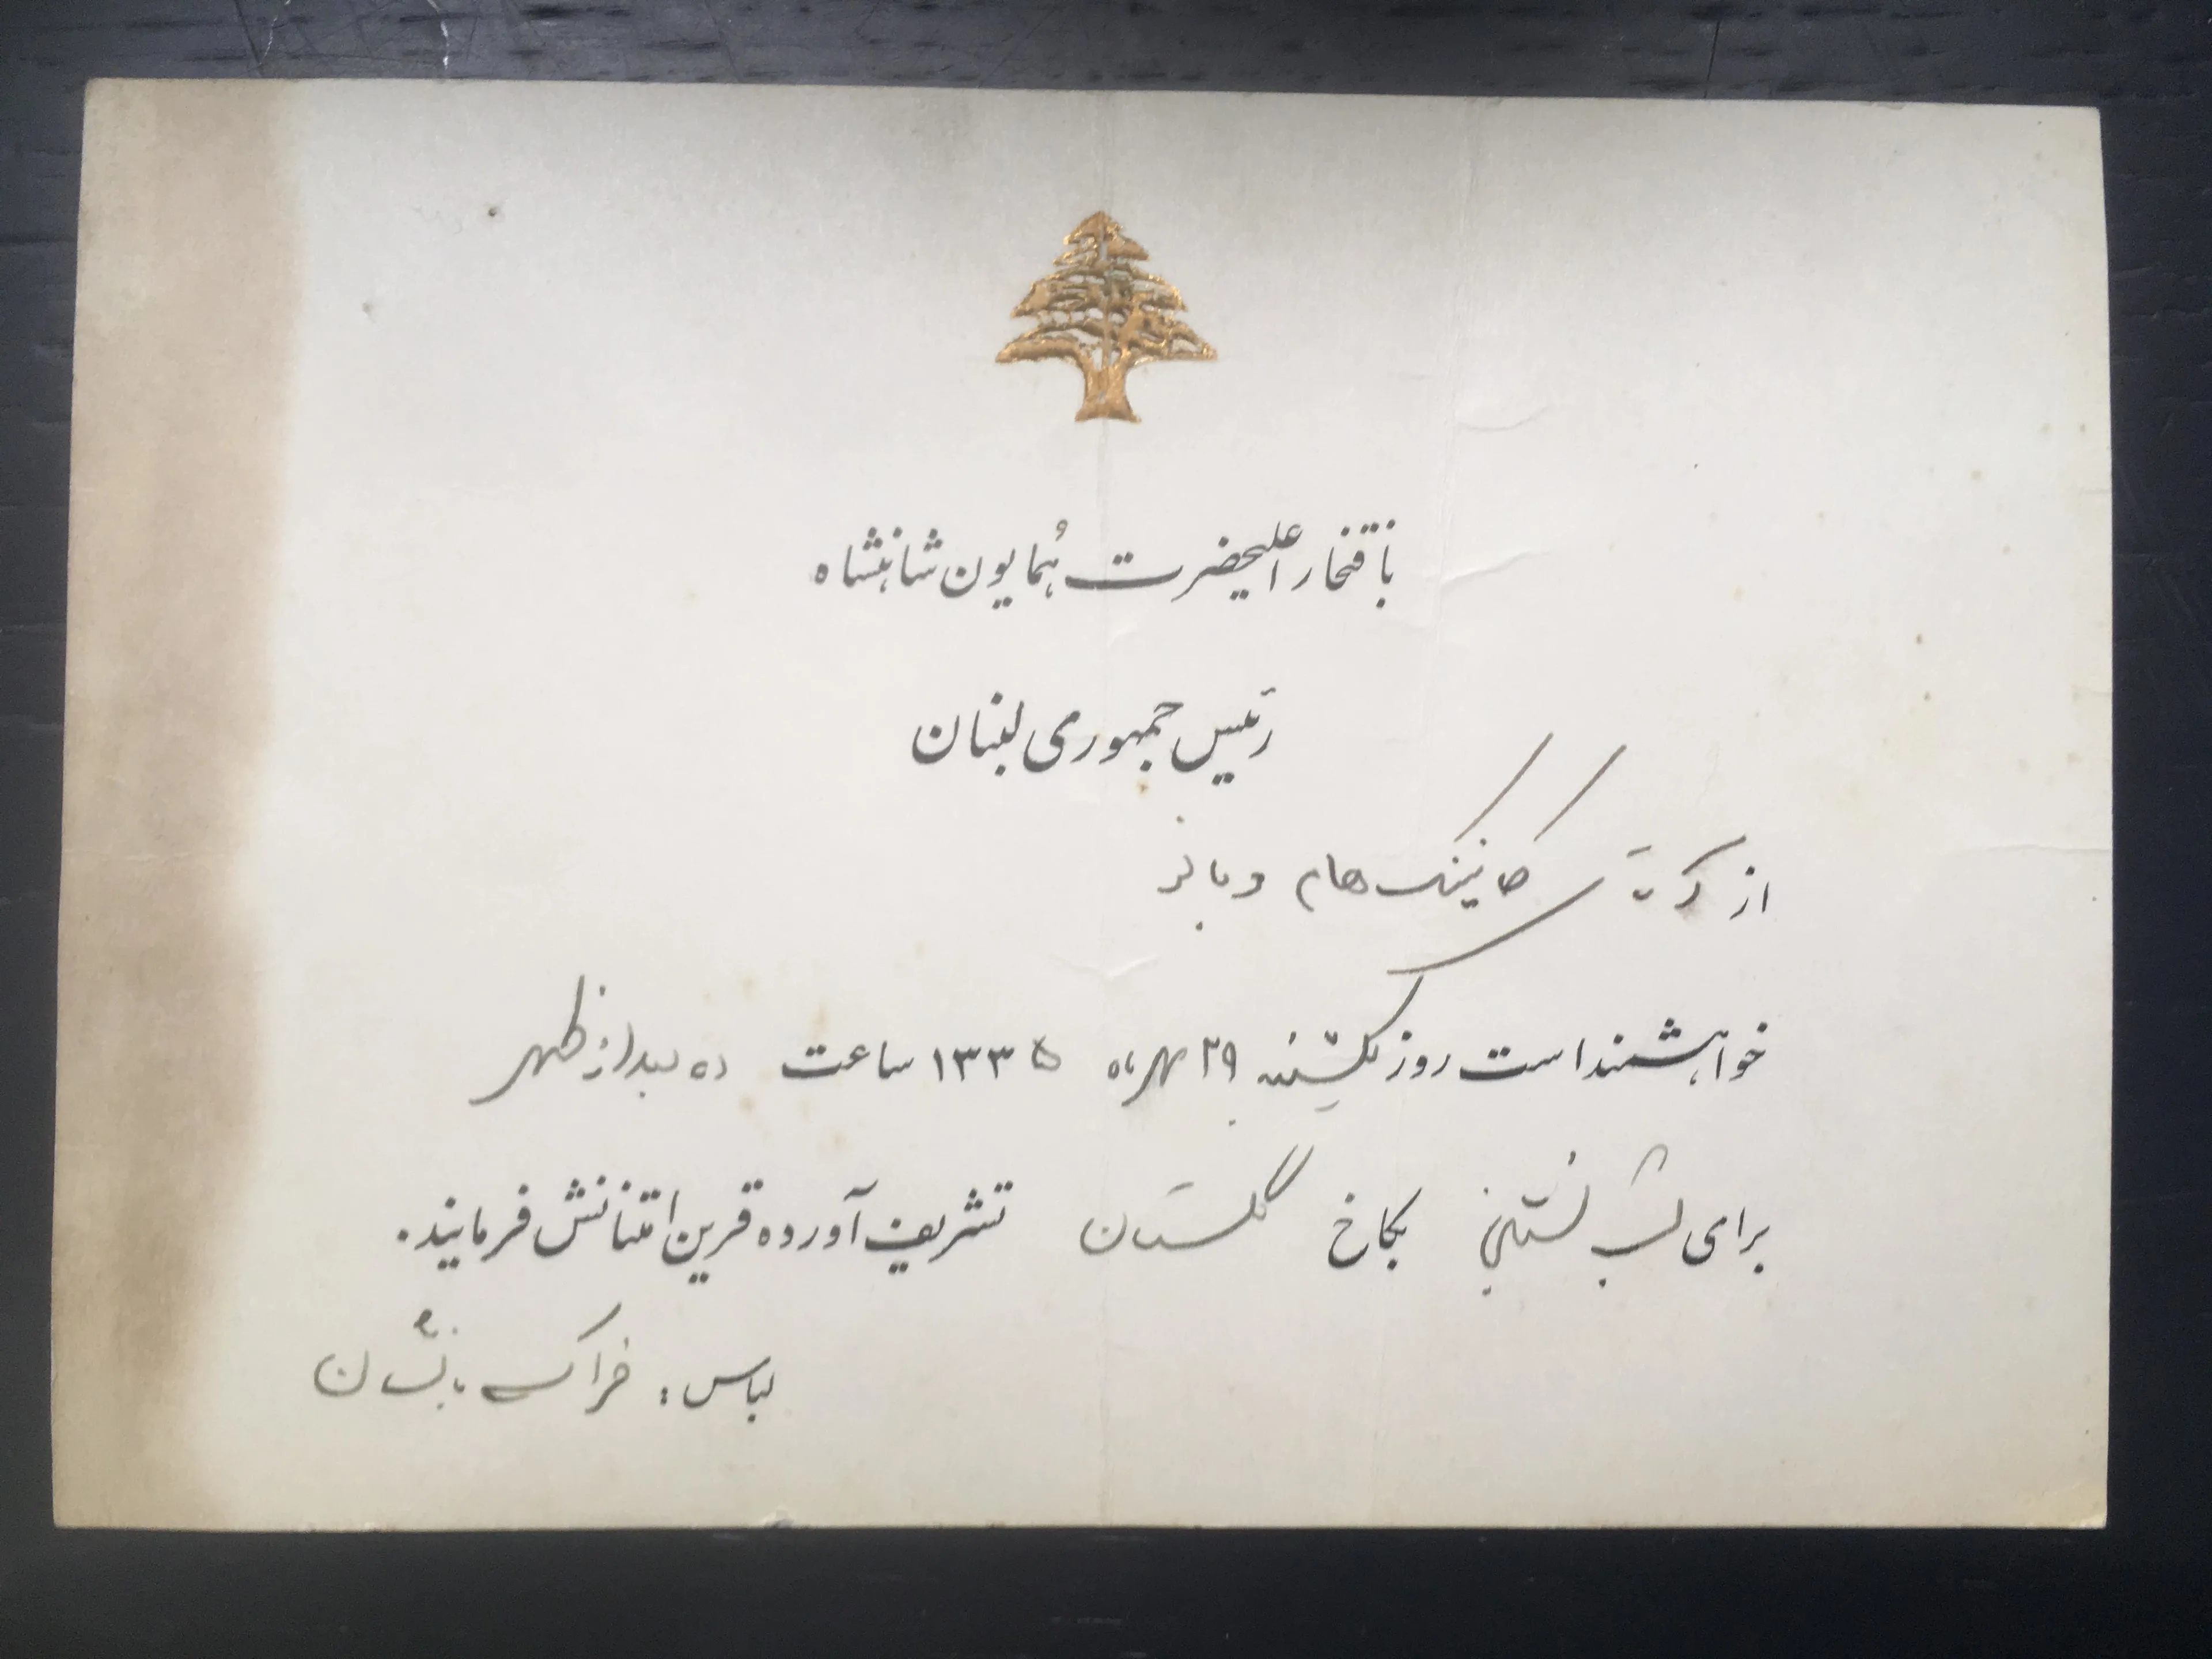 بافتخار اعلیحضرت همایون شاهنشاه
رئیس جمهوری لبنان
از کانینگ‌هام و بانو
خواهشمند است روز یکشنبه ۲۹ مهرماه ۱۳۳۵ ساعت ده بعد از ظهر
برای شب نشینی بکاخ گلستان تشریف آورده قرین امتنانش فرمایند.
لباس: فراک با نشان